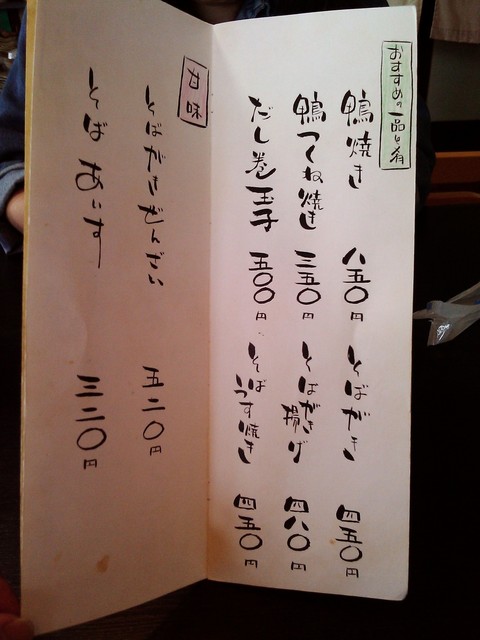 おすすめの一品と肴
鴨焼き 八五〇円 そばがき 四五〇円
鴨つくね焼き 三五〇円 そばがき揚げ 四八〇円
だし巻玉子 五〇〇円 そばうす焼き 四五〇円
甘味
そばがきぜんざい 五二〇円
そばあいす 三二〇円